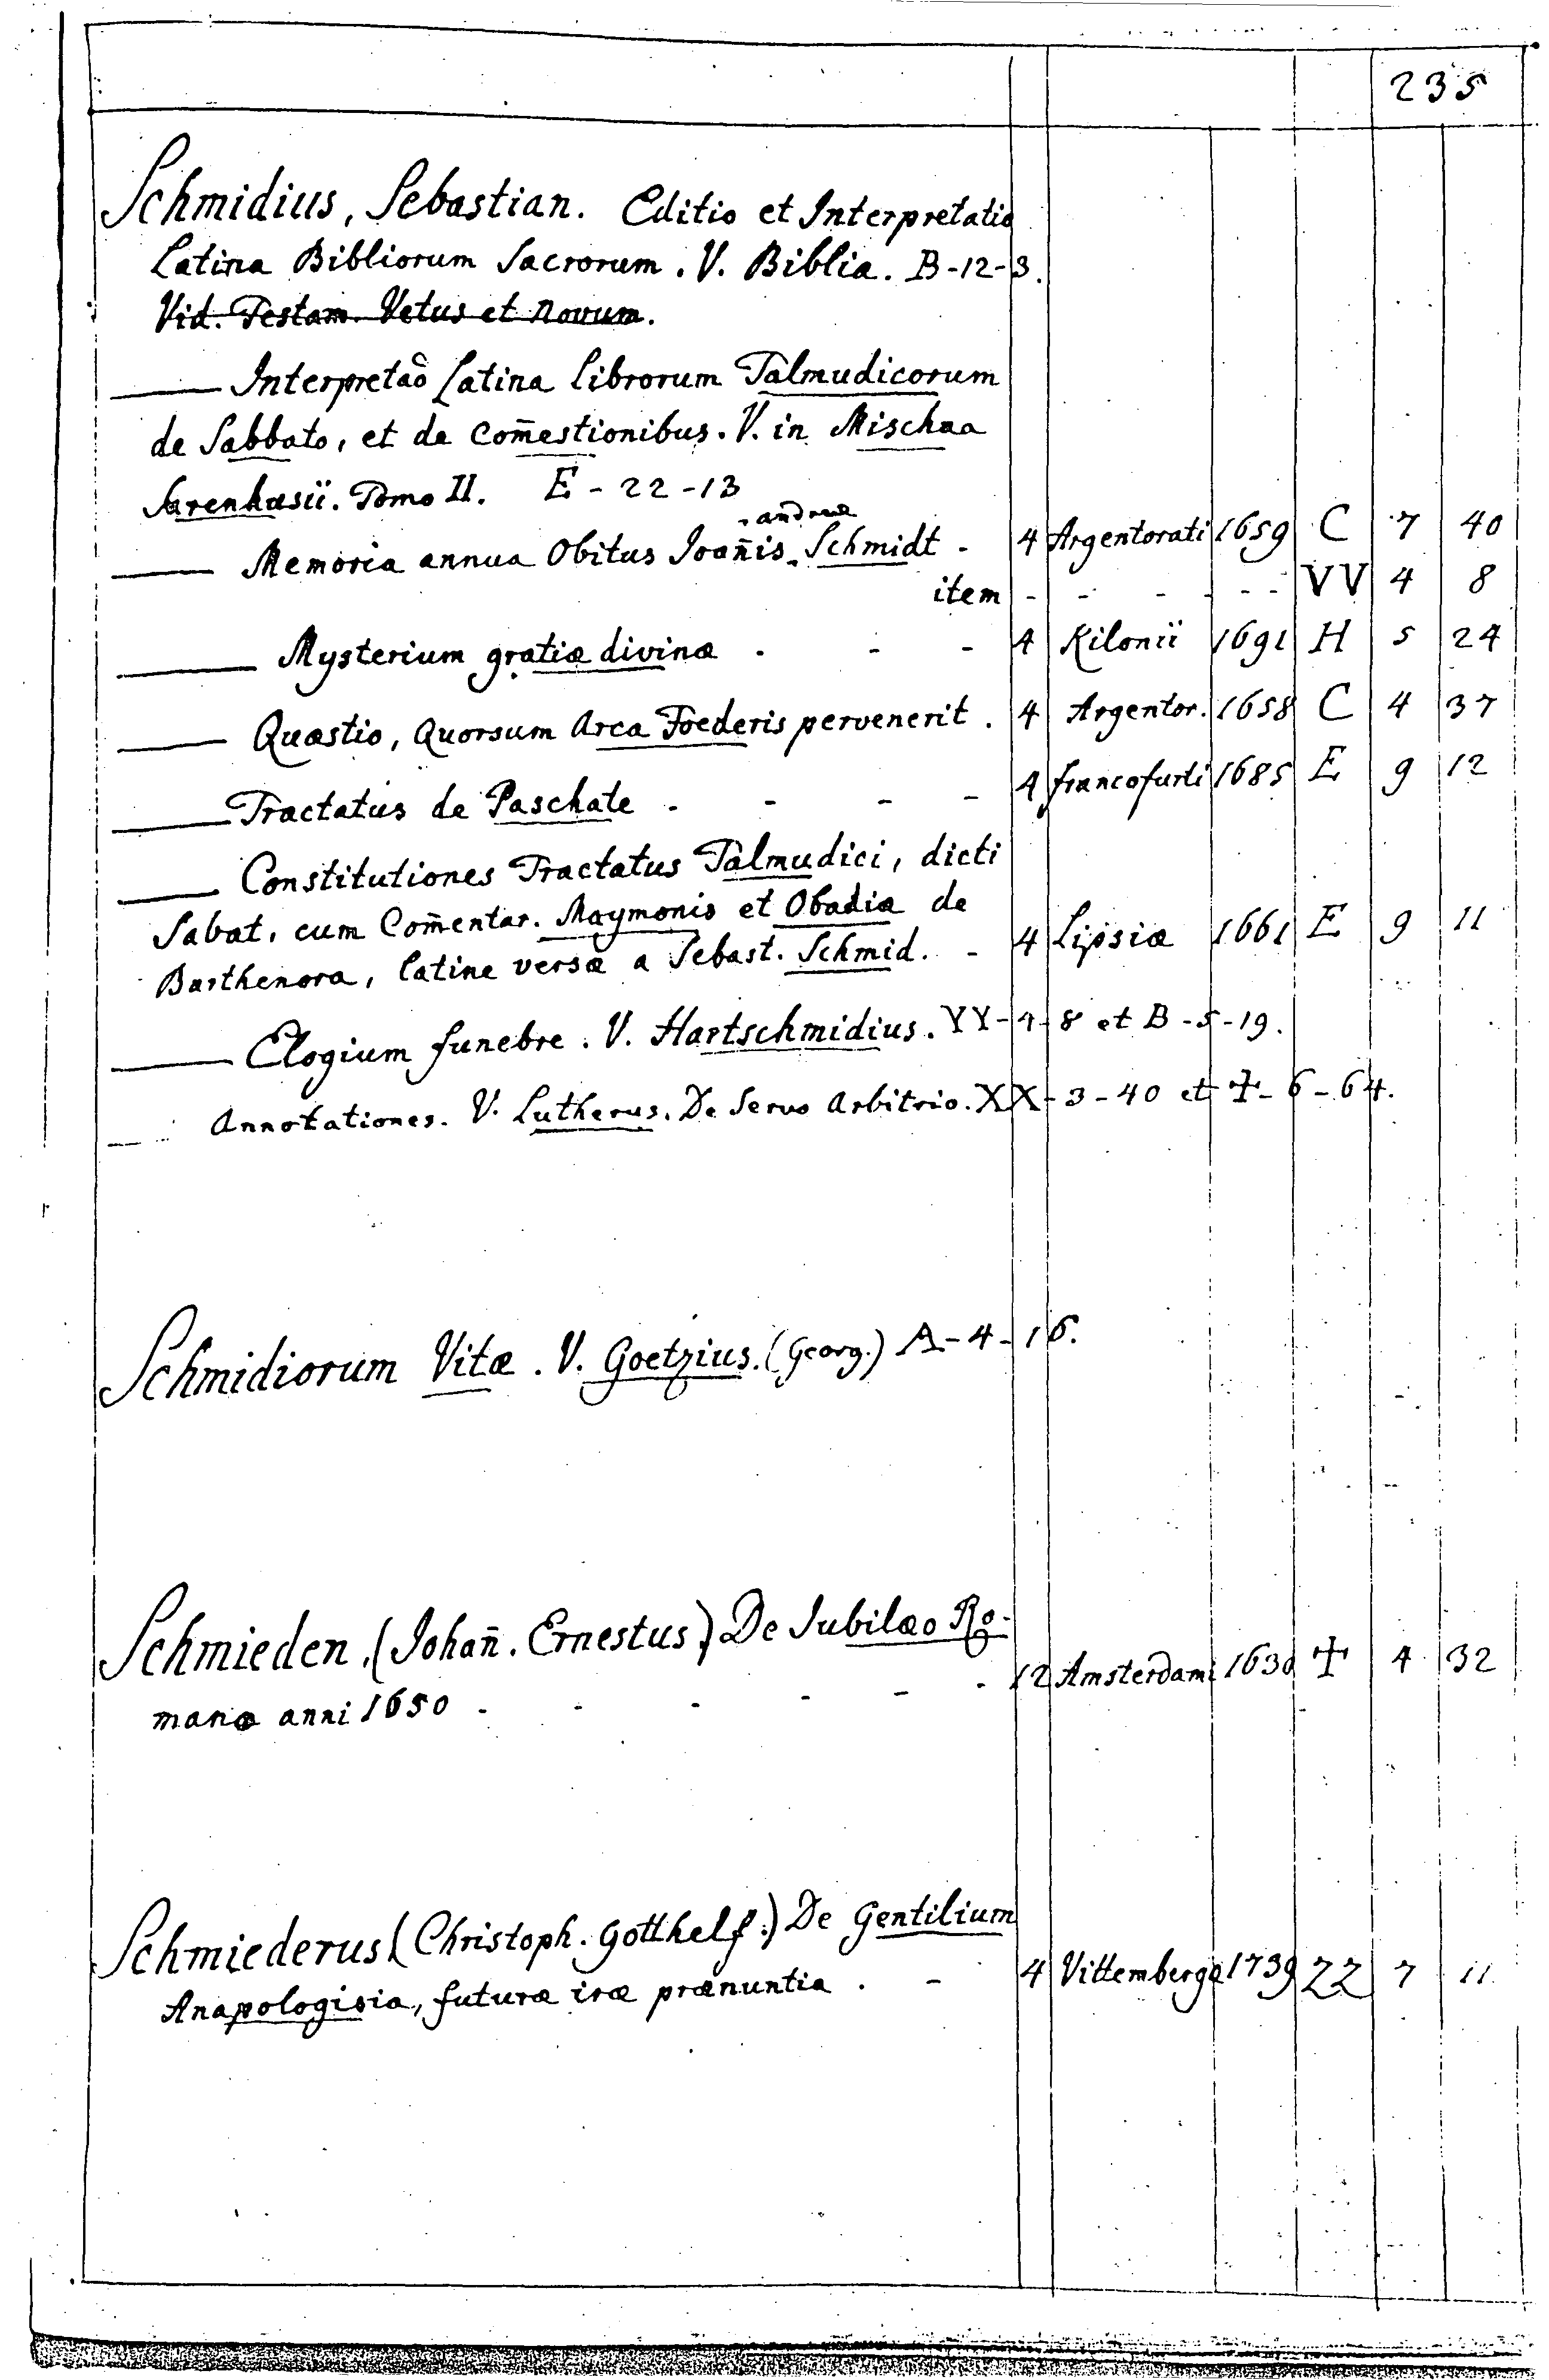 235
Schmidius, Sebastian. Editio et Interpretatio
Latina Bibliorum Sacrorum. V. Biblia. B-12-3.
Vid. Testam. Vetus et Novum.
—— Interpretaõ Latina librorum Talmudicorum
de Sabbato, et de Com̃estionibus. V. in Mischna
Surenhusii. Tomo II. E-22-13
andreæ
—— Memoria annua Obitus Joañis Schmidt - 4 Argentorati 1659 C 7 40
item - - - - - - VV 4 8
—— Mysterium gratiæ divinæ . - - 4 Kilonii 1691 H 5 24
—— Quæstio, Quorsum Arca Foederis pervenerit . 4 Argentor. 1658 C 4 37
—— Tractatus de Paschate - - - - 4 francofurti 1685 E 9 12
—— Constitutiones Tractatus Talmudici, dicti
Sabat, cum Com̃entar. Maymonis et Obadiæ de
Barthenora, latine versæ a Sebast. Schmid. - 4 Lipsiæ 1661 E 9 11
—— Elogium funebre. V. Hartschmidius. YY-4-8 et B-5-19.
—— Annotationes. V. Lutherus. De Servo Arbitrio. XX-3-40 et Ⳁ-6-64.
Schmidiorum Vitæ. V. Goetzius. (Georg.) A-4-16.
Schmieden, (Johañ. Ernestus) De Jubilæo Ro-
mano anni 1650 - - - - - - 12 Amsterdami 1630 Ⳁ 4 32
Schmiederus (Christoph. Gotthelf.) De Gentilium
Anapologisia, futuræ iræ prænuntia . - 4 Vittembergæ 1739 ZZ 7 11